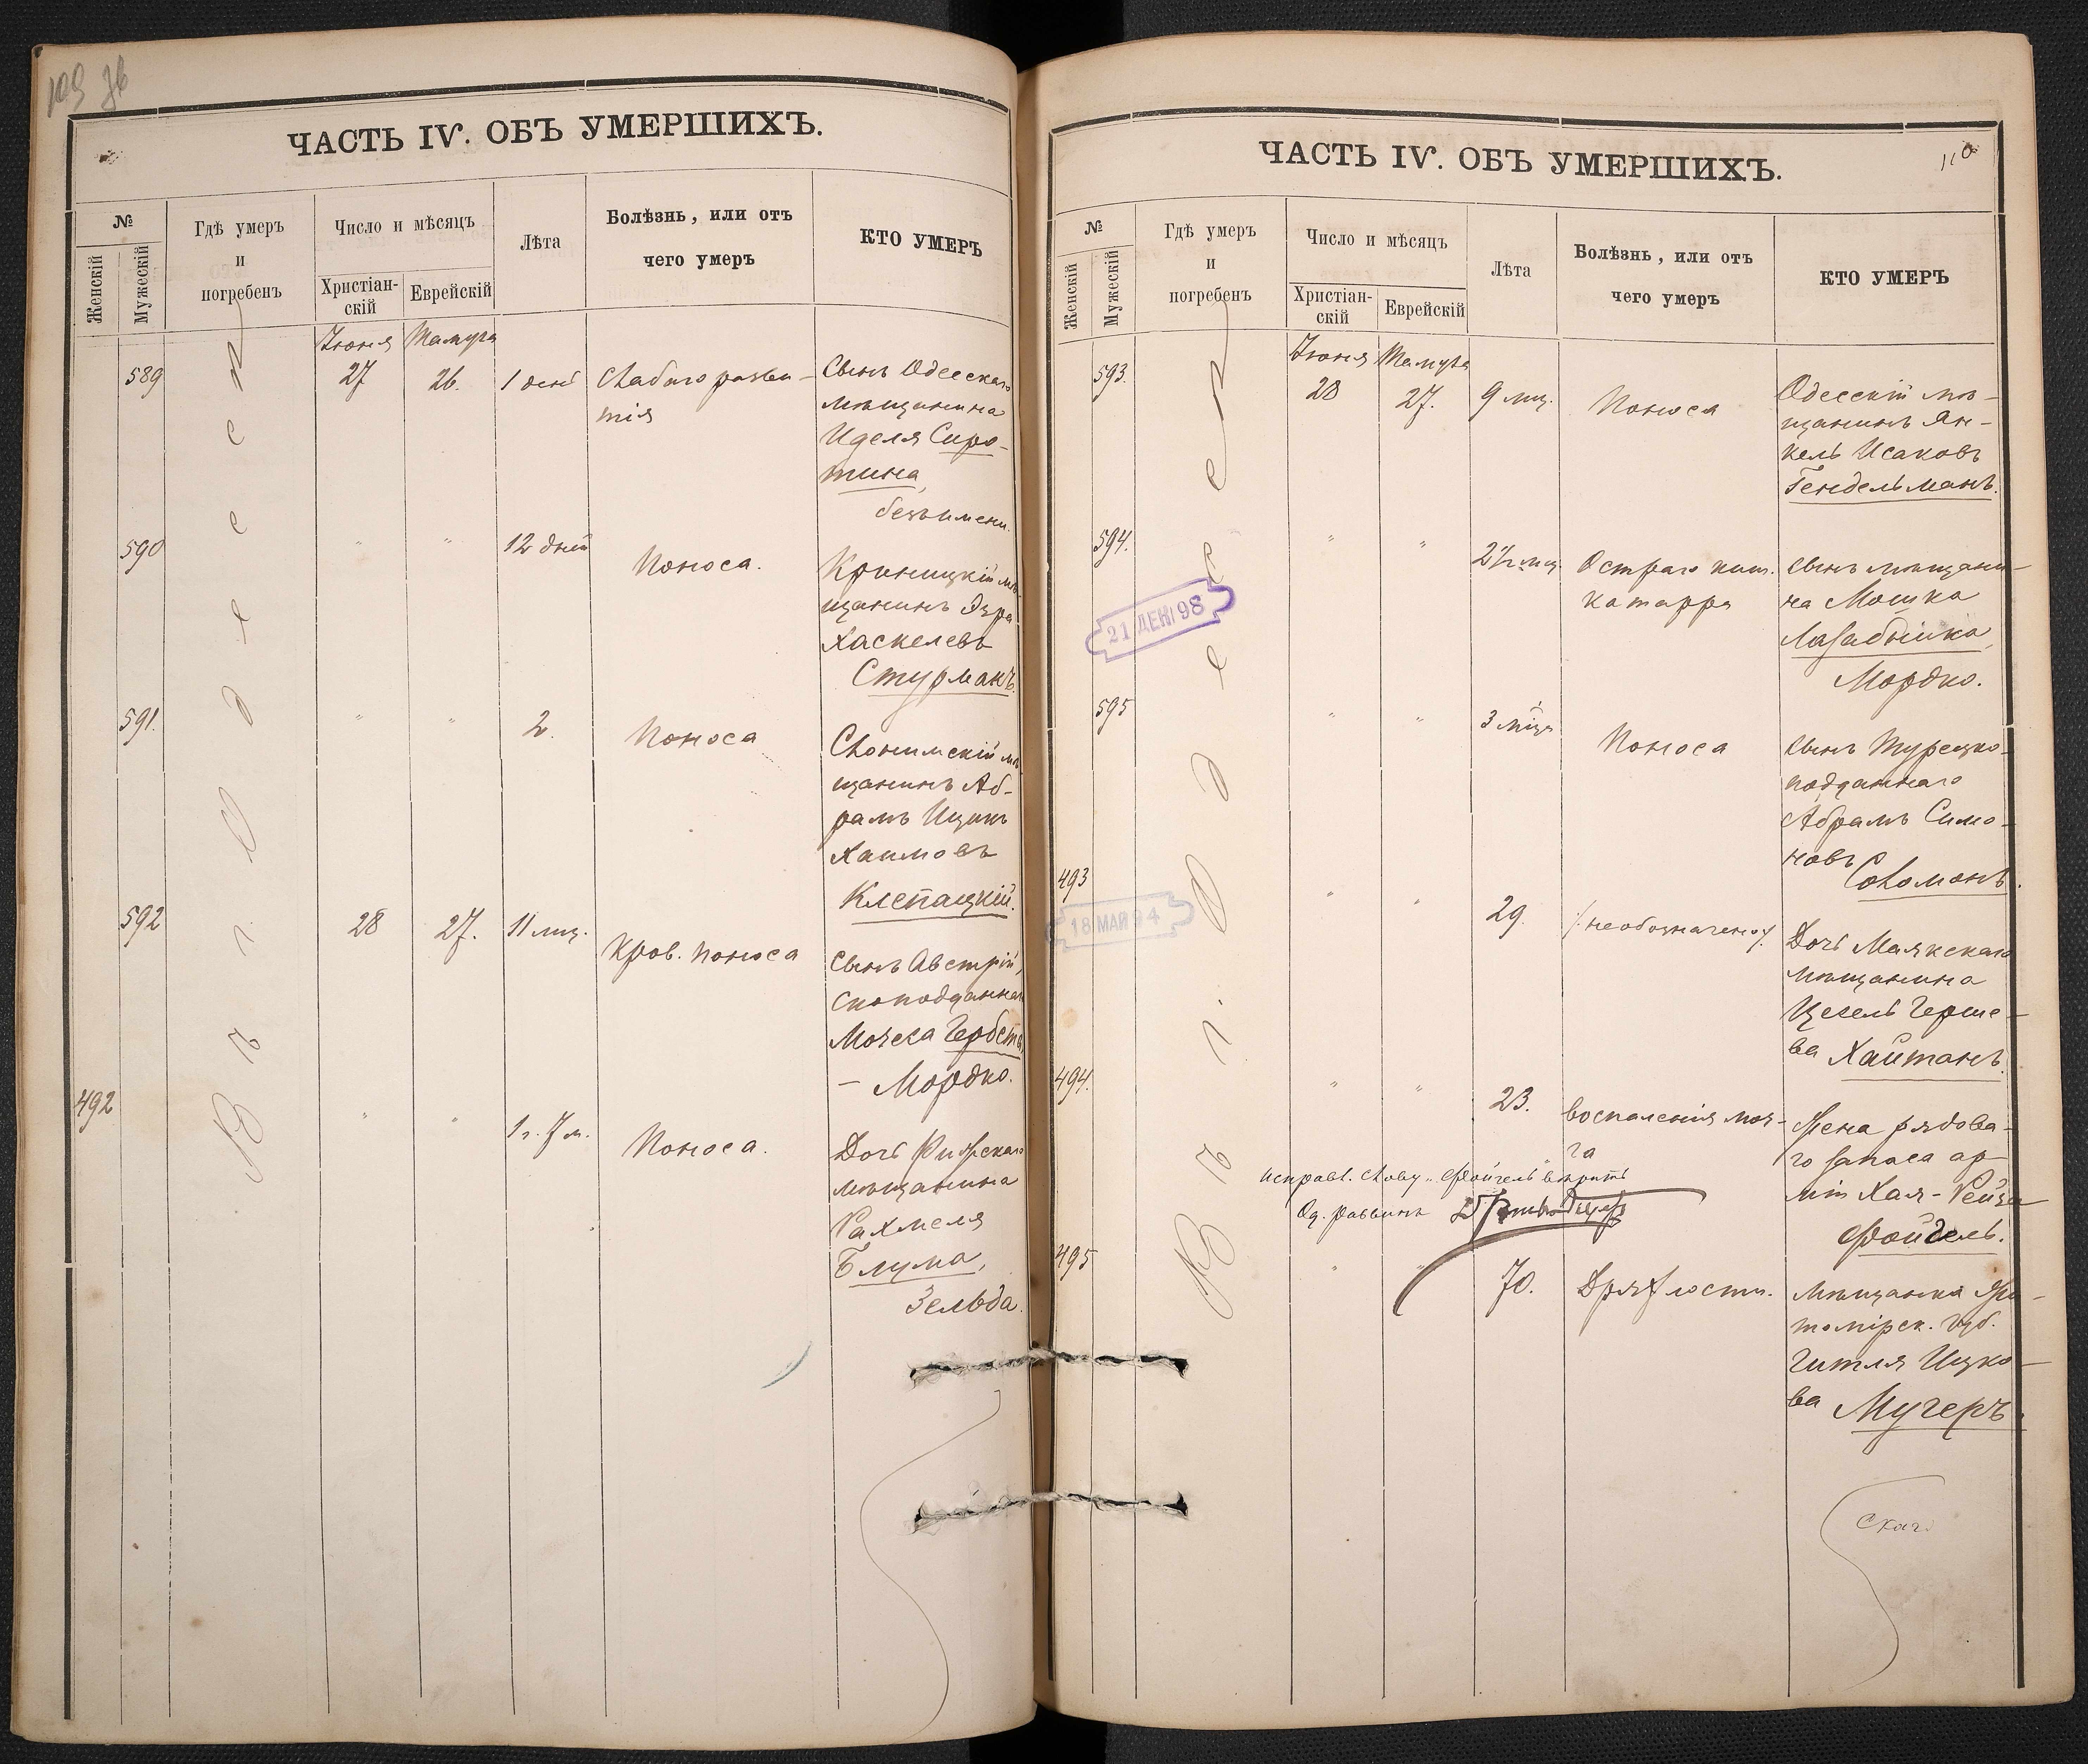 109 об
ЧАСТЬ IV. ОБЪ УМЕРШИХЪ.
№
Женскій
Мужескій
Гдѣ умеръ
и
погребенъ
Число и мѣсяцъ
Христіан-
скій
Еврейскій
Лѣта
Болѣзнь, или отъ
чего умеръ
КТО УМЕРЪ
Въ г. Одессѣ
Іюня Тамуза
589 27 26. 1 день Слабаго разви-
тія
Сынъ Одесскаго
мѣщанина
Иделя Сиро-
тина,
безъимени.
590 " " 12 дней Поноса.
Криницкій мѣ-
щанинъ Эзра
Хаскелевъ
Стурманъ.
591. " " 2. Поноса
Слонимскій мѣ-
щанинъ Аб-
рамъ Ицикъ
Хаимовъ
Клепацкій.
592 28 27. 11 мц. Кров. поноса
Сынъ Австрій-
скоподданнаго
Мозеса Гербста
— Мордко.
492 " " 1 г. 7 м. Поноса.
Дочь Рижскаго
мѣщанина
Рахмеля
Блума,
Зельда.
110
ЧАСТЬ IV. ОБЪ УМЕРШИХЪ.
№
Женскій
Мужескій
Гдѣ умеръ
и
погребенъ
Число и мѣсяцъ
Христіан-
скій
Еврейскій
Лѣта
Болѣзнь, или отъ
чего умеръ
КТО УМЕРЪ
Въ г. Одессѣ
Іюня Тамуза
593. 28 27. 9 мц. Поноса
Одесскій мѣ-
щанинъ Ян-
кель Исаковъ
Гендельманъ.
594. " " 2½ мц Остраго киш.
катарра
Сынъ мѣщани-
на Мошка
Мордко.
21 ДЕК 98
595 " " 3 мѣца Поноса
Сынъ Турецко-
подданнаго
Абрамъ Симо-
новъ
Соломонъ.
18 МАЙ 94
493 " " 29. /.необозначено./
Дочь Маякскаго
мѣщанина
Цесель Герше-
ва Хайтанъ.
494. " " 23. воспаленія моз-
га
Жена рядова-
го запаса ар-
міи Хая-Рейза
Фойгель.
исправл. слову „Фойгель“ вѣрить
Од. раввинъ
495 " " 70. Дряхлости.
Мѣщанка Жи-
томірск. губ.
Гитля Ицко-
ва Мучеръ.